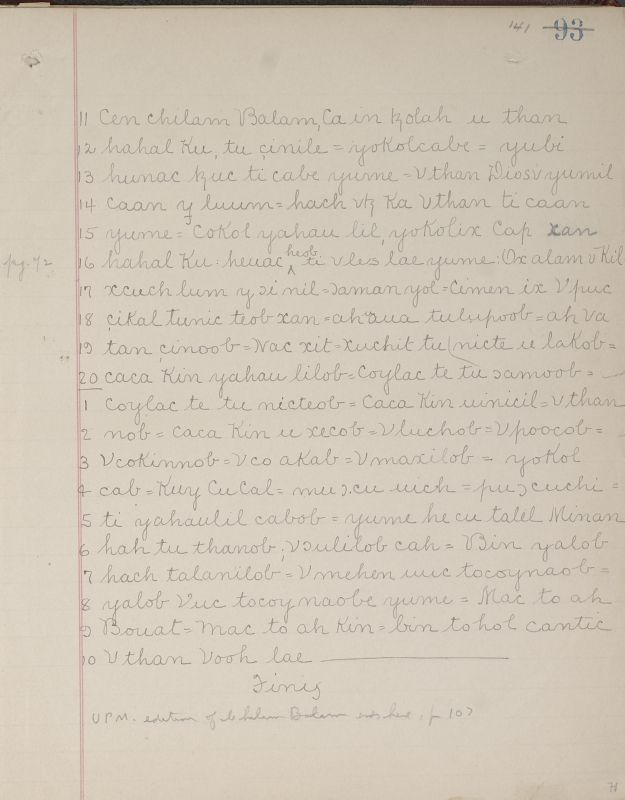 141 93
11 Cen chilam Balam, Ca in ꜩolah u than
12 hahal Ku, tu çinile = yokolcabe = yubi
13 hunac ꜩuc ti cabe yume = V than Dios v yumil
14 caan y luum = hach vꜩ Ka V than ti caan
15 yume = Cokol yahau lil, yokolix Cap xan
pg. 72
16 hahal Ku: heuac heob ti vles lae yume: Ox alam v Kil
17 xcuch lum y ɔi nil = ɔaman yol = Cimen ix V puc
18 çikal Tunic teob xan = ah aua tulçupoob = ah va
19 tan çinoob = Nac xit = xuchit tu nicte u lakob =
20 caca Kin yahau lilob = Coylac te tu ɔamoob =
1 Coylac te tu nicteob = Caca Kin uinicil = V than
2 nob = Caca Kin u xecob = V luchob = V poocob =
3 V cokinnob = V co akab = V maxilob = yokol
4 cab = Kuy Cu Cal = muɔ cu uich = puɔ cuchi =
5 ti yahaulil cabob = yume he cu talel Minan
6 hah tu thanob, V ɔulilob cah = Bin yalob
7 hach talanilob = V mehen uuc tocoynaob =
8 yalob Vuc tocoynaobe yume = Mac to ah
9 Bouat = Mac to ah Kin = bin tohol cantic
10 V than Vooh lae
Finis
U.P.M. edition of Chilam Balam ends here, p 107